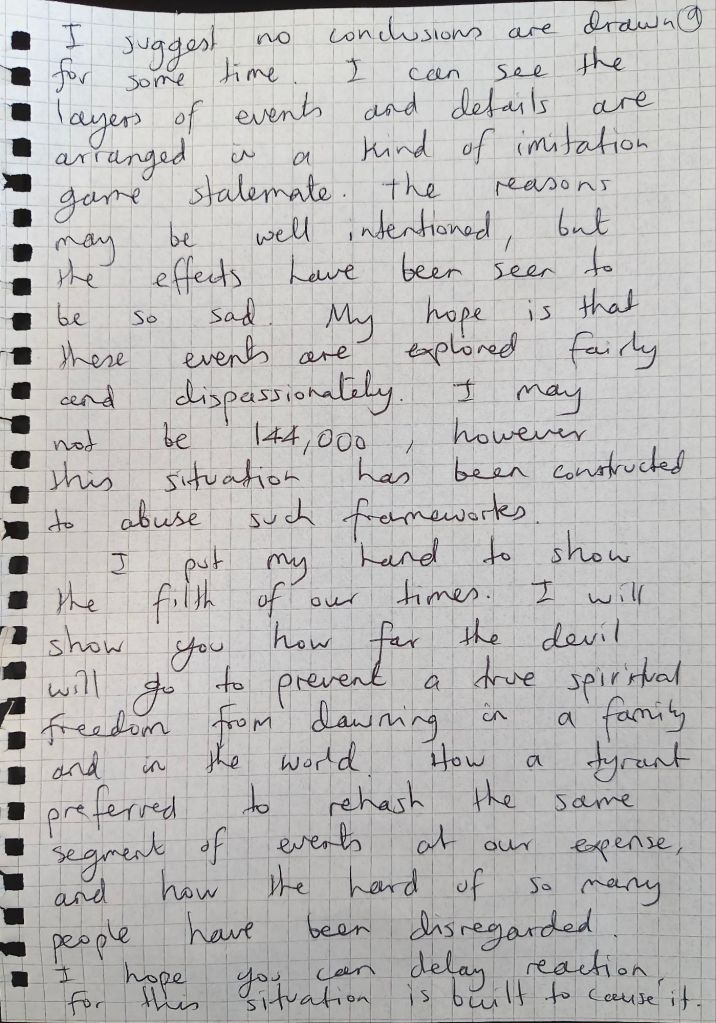 I suggest no conclusions are drawn 9
for some time. I can see the
layers of events and details are
arranged in a kind of imitation
game stalemate. The reasons
may be well intentioned, but
the effects have been seen to
be so sad. My hope is that
these events are explored fairly
and dispassionately. I may
not be 144,000, however
this situation has been constructed
to abuse such frameworks.
I put my hand to show
the filth of our times. I will
show you how far the devil
will go to prevent a true spiritual
freedom from dawning in a family
and in the world. How a tyrant
preferred to rehash the same
segment of events at our expense,
and how the hard of so many
people have been disregarded.
I hope you can delay reaction,
for this situation is built to cause it.